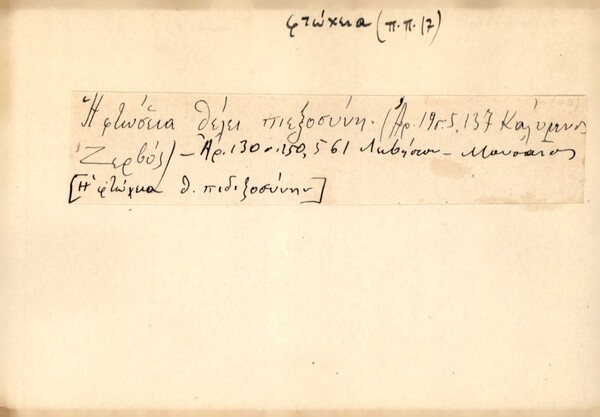 φτώχεια (π.π. 17)
Ἡ φτώσεια θέλει πιεξοσύνη. (Ἀρ. 19 5, 137 Κάλυμνος
Ζερβός) – Ἀρ. 130 150, 561 Λιβήσιον – Μουσαῖος
[Ἡ φτώχεια θ. πιδιξοσύνην]